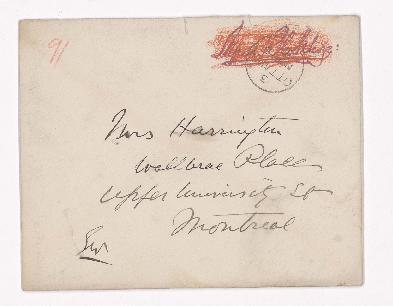 91
Mrs Harrington
Wallbrae Place
Upper University St
Montreal